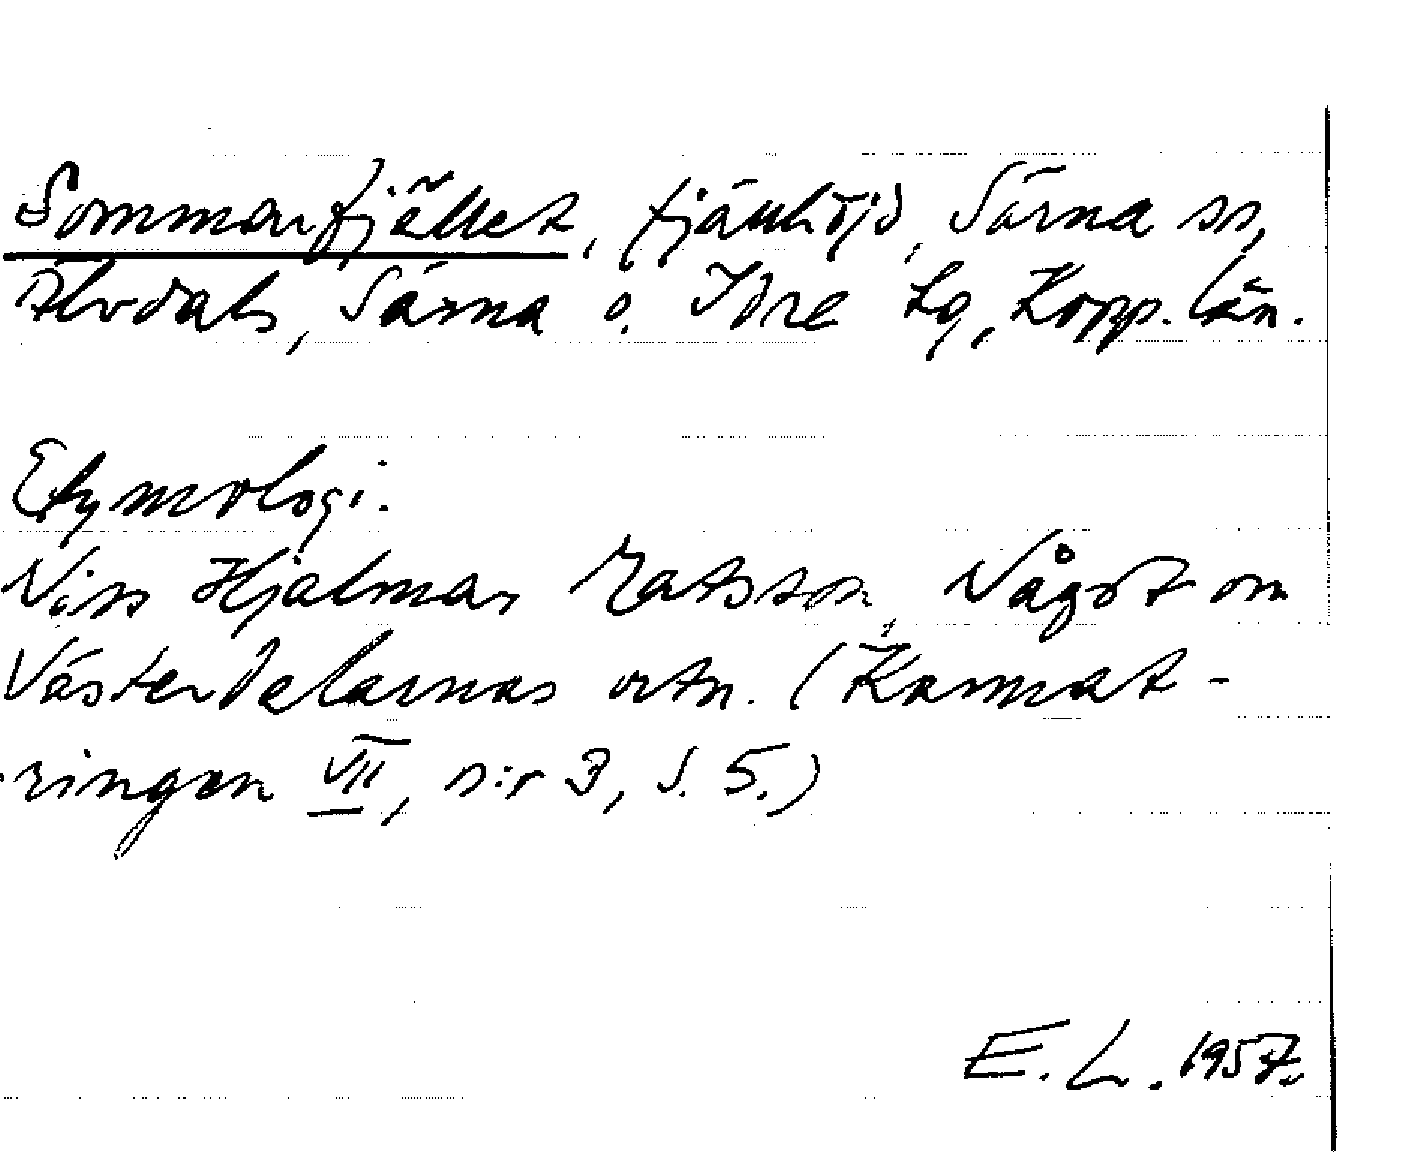 Sommarfjället, fjällhöjd, Särna sn,
Älvdals, Särna o. Idre tg, Kopp. län.
Etymologi.
Hjalmar Matsson, Något om
Västerdalarnas ortn. (Karmat-
ringen VII, n:r 3, s. 5.)
E. L. 1957.